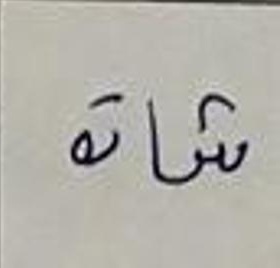 شاة